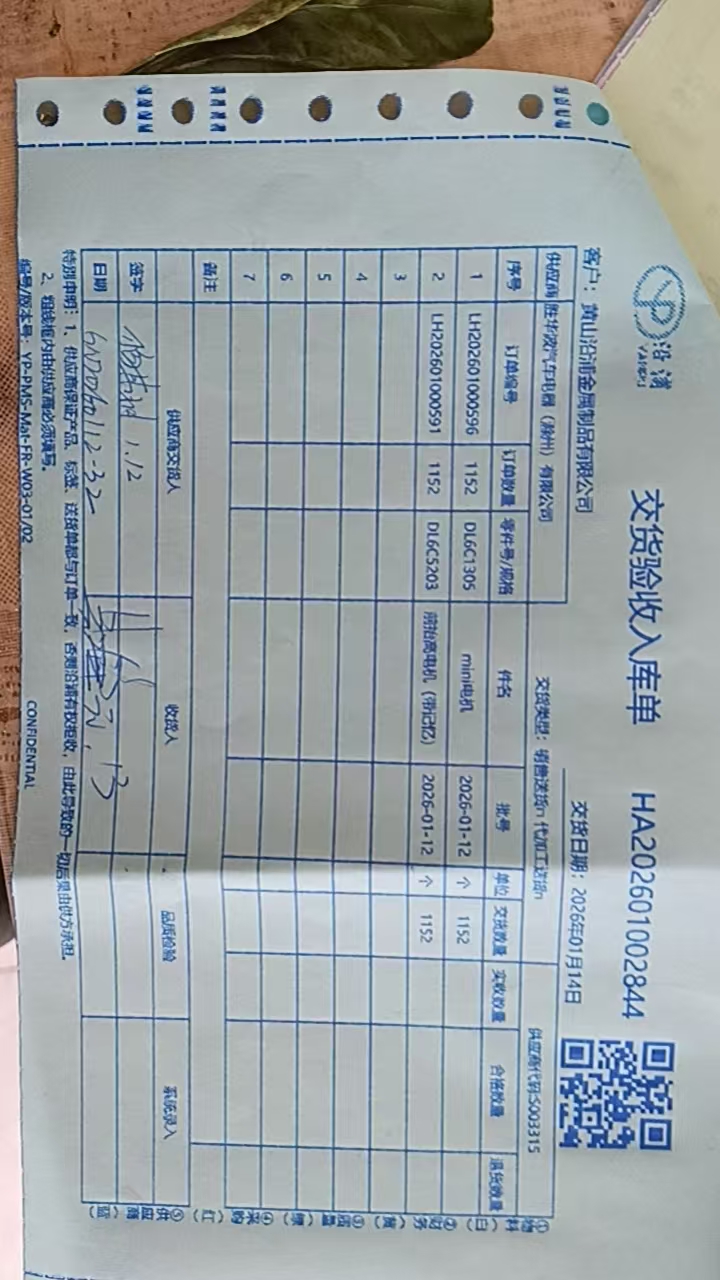 沿浦
YANPU
交货验收入库单 HA202601002844
客户：黄山沿浦金属制品有限公司 交货日期：2026年01月14日
供应商 胜华波汽车电器（滁州）有限公司 交货类型：销售送货n 代加工送货n 供应商代码:S003315
序号 订单编号 订单数量 零件号/规格 件名 批号 单位 交货数量 实收数量 合格数量 退货数量
1 LH202601000596 1152 DL6C1305 mini电机 2026-01-12 个 1152
2 LH202601000591 1152 DL6C5203 前抬高电机（带记忆） 2026-01-12 个 1152
3
4
5
6
7
备注
供应商交货人 收货人 品质检验 系统录入
签字 1.12
日期 13
特别申明：1、供应商保证产品、标签、送货单都与订单一致，否则沿浦有权拒收，由此导致的一切后果由供方承担。
2、粗线框内由供应商必须填写。
编号/版本号：YP-PMS-Mat-FR-W03-01/02 CONFIDENTIAL
①物料（白）
②财务（黄）
③质量（绿）
④采购（红）
⑤供应商（蓝）